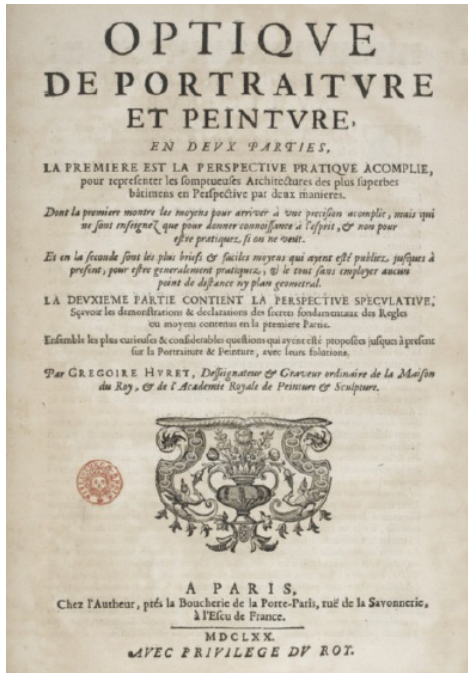 OPTIQVE
DE PORTRAITVRE
ET PEINTVRE,
EN DEVX PARTIES,
LA PREMIERE EST LA PERSPECTIVE PRATIQVE ACOMPLIE,
pour representer les somptueuses Architectures des plus superbes
bâtimens en Perspective par deux manieres.
Dont la premiere montre les moyens pour arriver à une precision acomplie, mais qui
ne sont enseignez que pour donner connoissance à l'esprit, & non pour
estre pratiquez, si on ne veut.
Et en la seconde sont les plus briefs & faciles moyens qui ayent esté publiez, jusques à
present, pour estre generalement pratiquez, & le tout sans employer aucun
point de distance ny plan geometral.
LA DEVXIEME PARTIE CONTIENT LA PERSPECTIVE SPECULATIVE,
Sçavoir les demonstrations & declarations des secrets fondamentaux des Regles
ou moyens contenus en la premiere Partie.
Ensemble les plus curieuses & considerables questions qui ayent esté proposées jusques à present
sur la Portraiture & Peinture, avec leurs solutions.
Par GREGOIRE HVRET, Desseignateur & Graveur ordinaire de la Maison
du Roy, & de l'Academie Royale de Peinture & Sculpture.
A PARIS,
Chez l'Autheur, prés la Boucherie de la Porte-Paris, ruë de la Savonnerie,
à l'Escu de France.
MDCLXX.
AVEC PRIVILEGE DV ROY.